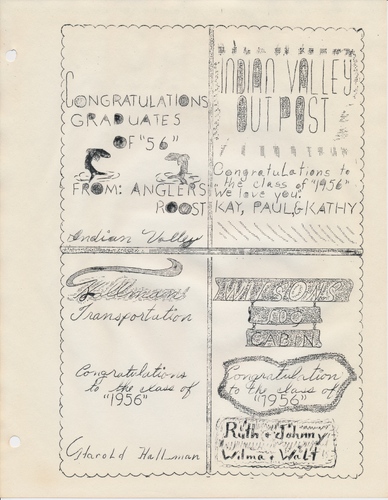 CONGRATULATIONS
GRADUATES
OF "56"
FROM: ANGLERS
ROOST
Indian Valley
INDIAN VALLEY
OUTPOST
Congratulations to
the class of "1956"
We love you.
KAY, PAUL, & KATHY
Hallmans
Transportation
Congratulations
to the class of
"1956"
Harold Hallman
WILSONS
LOG
CABIN
Congratulation
to the class of
"1956"
Ruth & Johnny
Wilma & Walt